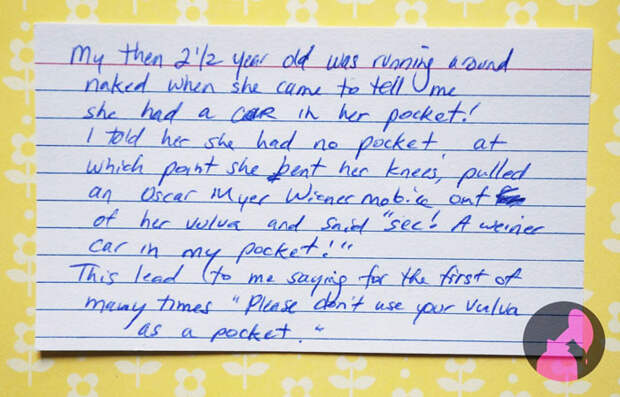 My then 2 1/2 year old was running around
naked when she came to tell me
she had a CAR in her pocket!
I told her she had no pocket at
which point she bent her knees, pulled
an Oscar Myer Wiener mobile out
of her vulva and said "see! A weiner
car in my pocket!"
This lead to me saying for the first of
many times "Please don't use your vulva
as a pocket."